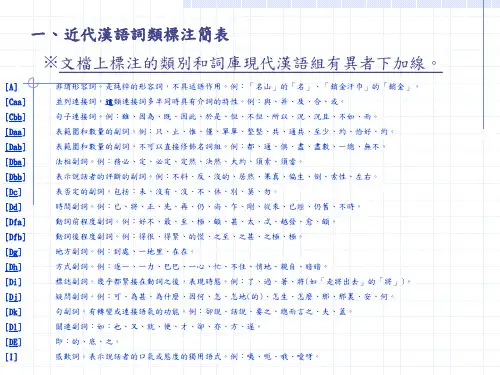 一、近代漢語詞類標注簡表
※文檔上標注的類別和詞庫現代漢語組有異者下加線。
[A] 非謂形容詞。是純粹的形容詞,不具述語作用。例:「名山」的「名」、「銷金汗巾」的「銷金」。
[Caa] 並列連接詞,這類連接詞多半同時具有介詞的特性。例:與、并、及、合、或。
[Cbb] 句子連接詞。例:雖、因為、既、因此、於是、但、不但、所以、況、況且、不如、而。
[Daa] 表範圍和數量的副詞。例:只、止、惟、僅、單單、整整、共、通共、至少、約、恰好、約。
[Dab] 表範圍和數量的副詞,不可以直接修飾名詞組。例:都、通、俱、盡、盡數、一總、無不。
[Dba] 法相副詞。例:務必、定、必定、定然、決然、大約、須索、須當。
[Dbb] 表示說話者的評斷的副詞。例:不料、反、沒的、居然、果真、偏生、倒、索性、左右。
[Dc] 表否定的副詞。包括:未、沒有、沒、不、休、別、莫、勿。
[Dd] 時間副詞。例:已、將、正、先、再、仍、尚、乍、剛、從來、已經、仍舊、不時。
[Dfa] 動詞前程度副詞。例:好不、最、至、極、頗、甚、太、忒、越發、愈、頗。
[Dfb] 動詞後程度副詞。例:得很、得緊、的慌、之至、之甚、之極、極。
[Dg] 地方副詞。例:到處、一地里、在在。
[Dh] 方式副詞。例:逐一、一力、巴巴、一心、忙、不住、悄地、親自、暗暗。
[Di] 標誌副詞。幾乎都緊接在動詞之後,表現時態。例:了、過、著、將(如「走將出去」的「將」)。
[Dj] 疑問副詞。例:可、為甚、為什麼、因何、怎、怎地(的)、怎生、怎麼、那、那裏、安、何。
[Dk] 句副詞,有轉變或連接語氣的功能。例:卻說、話說、要之、總而言之、夫、蓋。
[Dl] 關連副詞:如:也、又、就、便、才、卻、亦、方、遂。
[DE] 即:的、底、之。
[I] 感歎詞。表示說話者的口氣或態度的獨用語式。例:咦、呃、哦、噯呀。